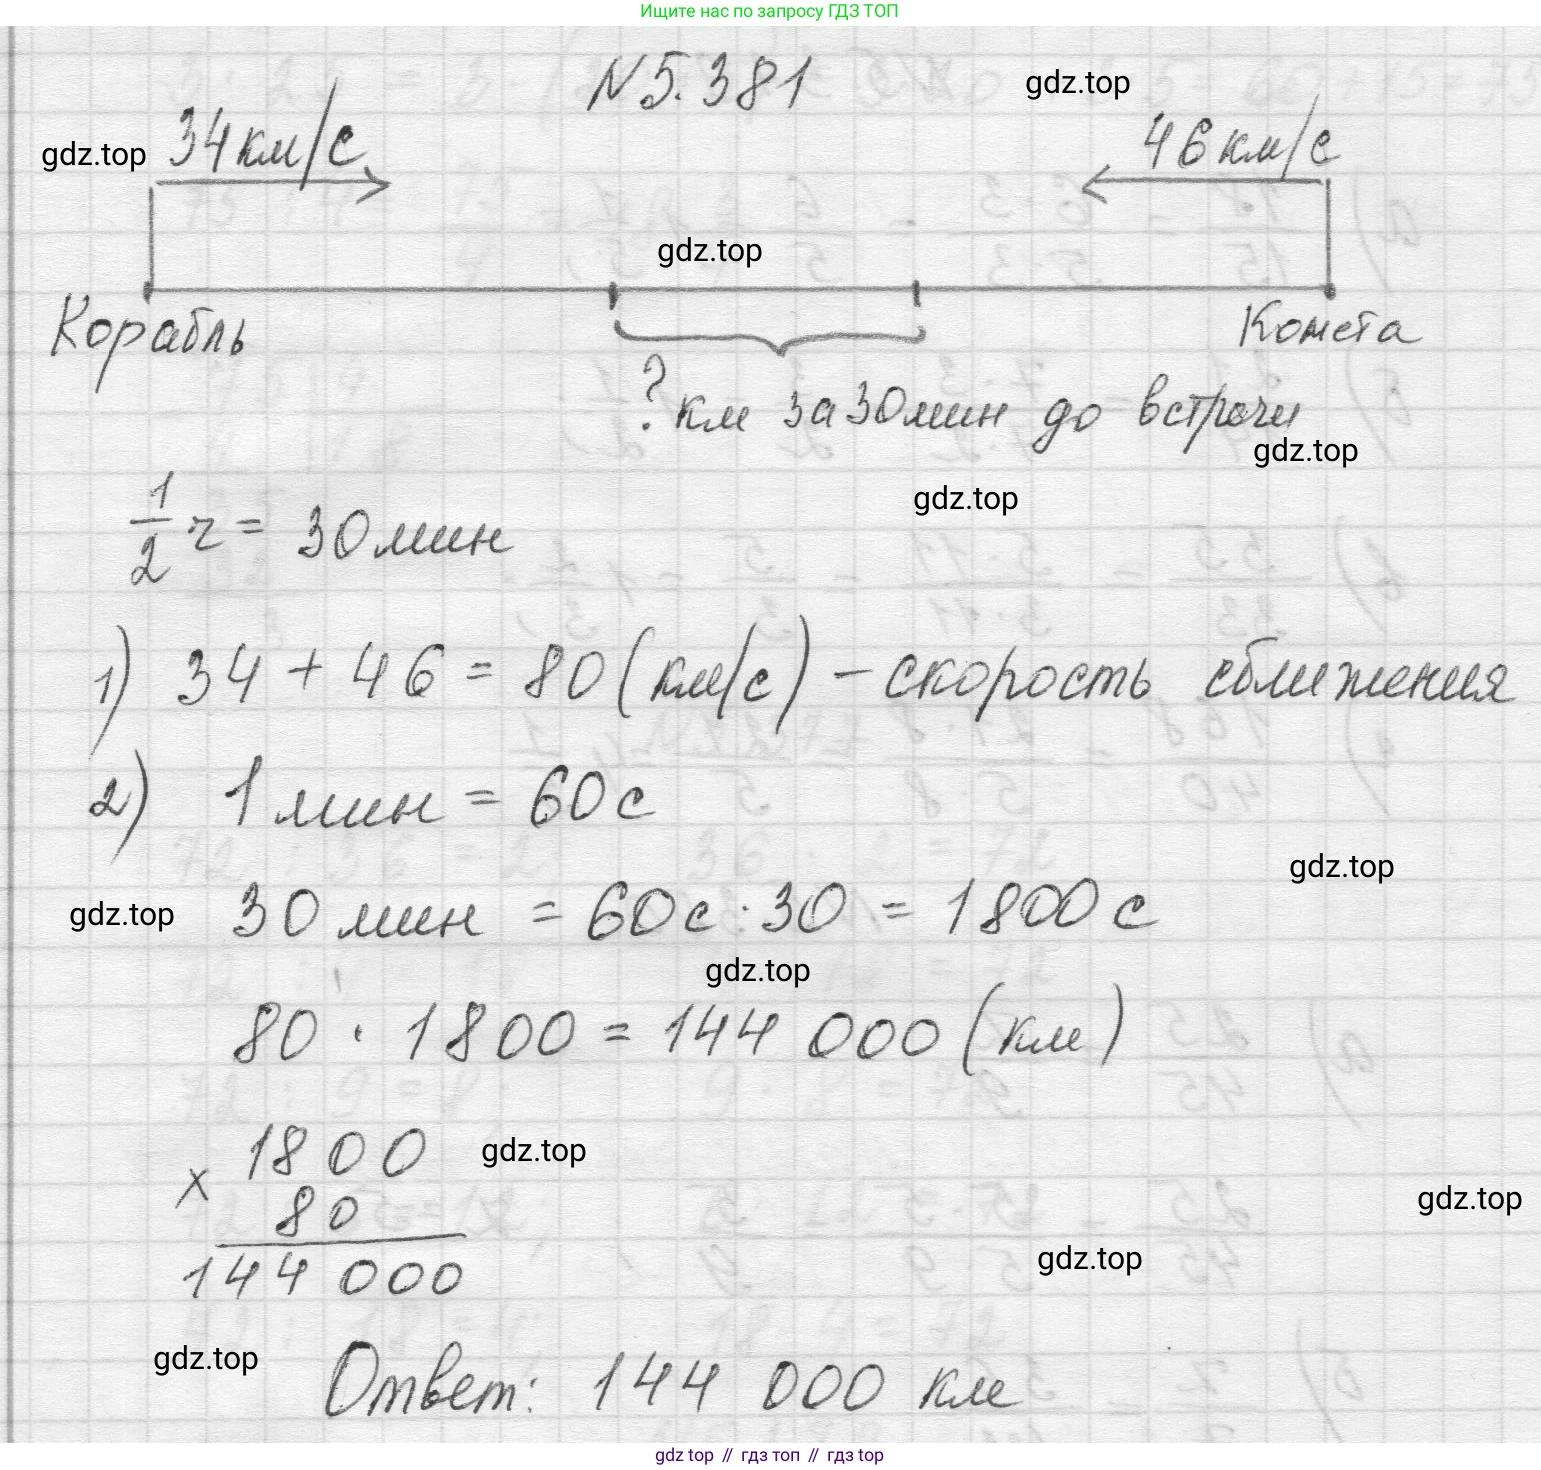 Ищите нас по запросу ГДЗ ТОП
№5.381
gdz.top
gdz.top
34 км/с
46 км/с
gdz.top
Корабль
Комета
? км за 30 мин до встречи
gdz.top
gdz.top
1/2 ч = 30 мин
1) 34 + 46 = 80 (км/с) – скорость сближения
2) 1 мин = 60 с
gdz.top
gdz.top
30 мин = 60 с · 30 = 1800 с
gdz.top
80 · 1800 = 144 000 (км)
1800
gdz.top
× 80
gdz.top
gdz.top
144 000
gdz.top
Ответ: 144 000 км
gdz top // гдз топ // gdz top